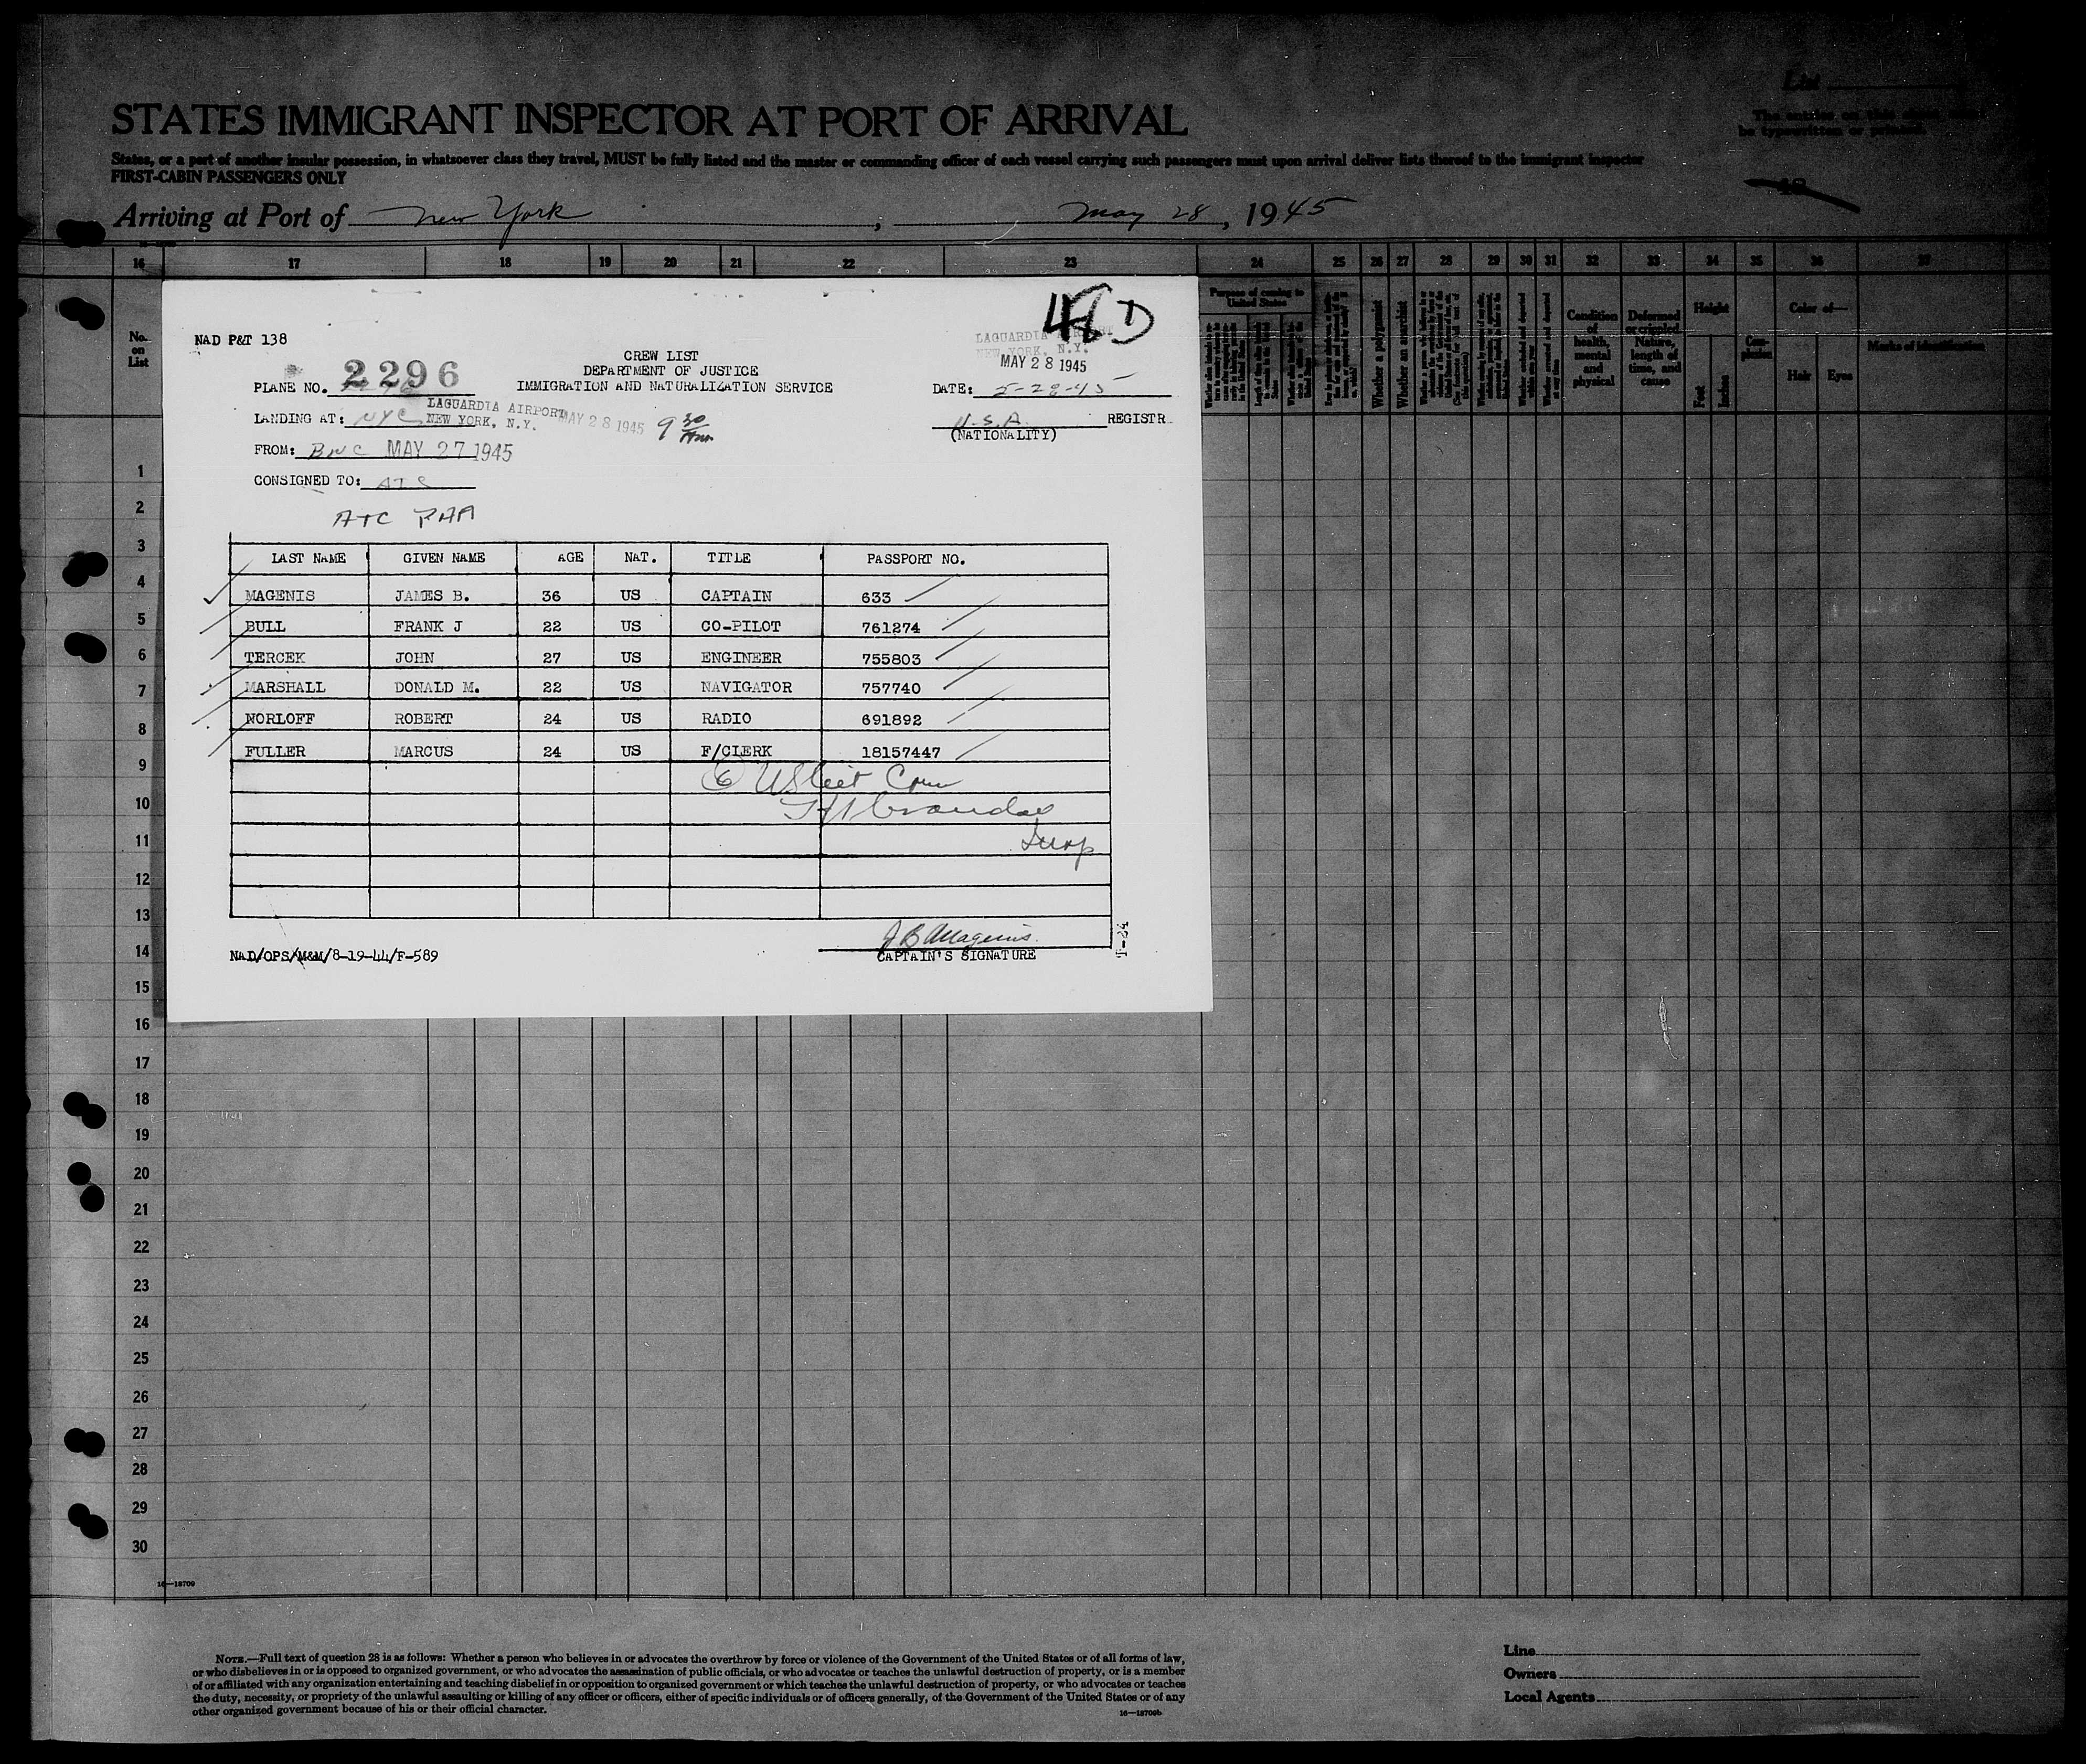 List
The entries on this sheet must
be typewritten or printed.
STATES IMMIGRANT INSPECTOR AT PORT OF ARRIVAL
States, or a port of another insular possession, in whatsoever class they travel, MUST be fully listed and the master or commanding officer of each vessel carrying such passengers must upon arrival deliver lists thereof to the immigrant inspector
FIRST-CABIN PASSENGERS ONLY
Arriving at Port of New York, May 28, 1945
16 17 18 19 20 21 22 23 24 25 26 27 28 29 30 31 32 33 34 35 36 37
No. on List
Purpose of coming to United States
Whether a polygamist
Whether an anarchist
Condition of health, mental and physical
Deformed or crippled. Nature, length of time, and cause
Height
Feet Inches
Com-plexion
Color of—
Hair Eyes
Marks of identification
48 D
NAD P&T 138
LAGUARDIA AIRPORT
NEW YORK, N.Y.
MAY 28 1945
CREW LIST
DEPARTMENT OF JUSTICE
IMMIGRATION AND NATURALIZATION SERVICE
PLANE NO. 2296
DATE: 5-28-45
LANDING AT: NYC LAGUARDIA AIRPORT NEW YORK, N.Y. MAY 28 1945 9 30 Am
U.S.A. REGISTR
(NATIONALITY)
FROM: BWC MAY 27 1945
CONSIGNED TO: ATC
ATC PAA
LAST NAME GIVEN NAME AGE NAT. TITLE PASSPORT NO.
MAGENIS JAMES B. 36 US CAPTAIN 633
BULL FRANK J 22 US CO-PILOT 761274
TERCEK JOHN 27 US ENGINEER 755803
MARSHALL DONALD M. 22 US NAVIGATOR 757740
NORLOFF ROBERT 24 US RADIO 691892
FULLER MARCUS 24 US F/CLERK 18157447
6 US Cit Crew
Insp
J B Magenis
CAPTAIN'S SIGNATURE
NAD/OPS/M&M/8-19-44/F-589
T-24
1
2
3
4
5
6
7
8
9
10
11
12
13
14
15
16
17
18
19
20
21
22
23
24
25
26
27
28
29
30
16—18709
NOTE.—Full text of question 28 is as follows: Whether a person who believes in or advocates the overthrow by force or violence of the Government of the United States or of all forms of law,
or who disbelieves in or is opposed to organized government, or who advocates the assassination of public officials, or who advocates or teaches the unlawful destruction of property, or is a member
of or affiliated with any organization entertaining and teaching disbelief in or opposition to organized government or which teaches the unlawful destruction of property, or who advocates or teaches
the duty, necessity, or propriety of the unlawful assaulting or killing of any officer or officers, either of specific individuals or of officers generally, of the Government of the United States or of any
other organized government because of his or their official character.
16—18709b
Line
Owners
Local Agents